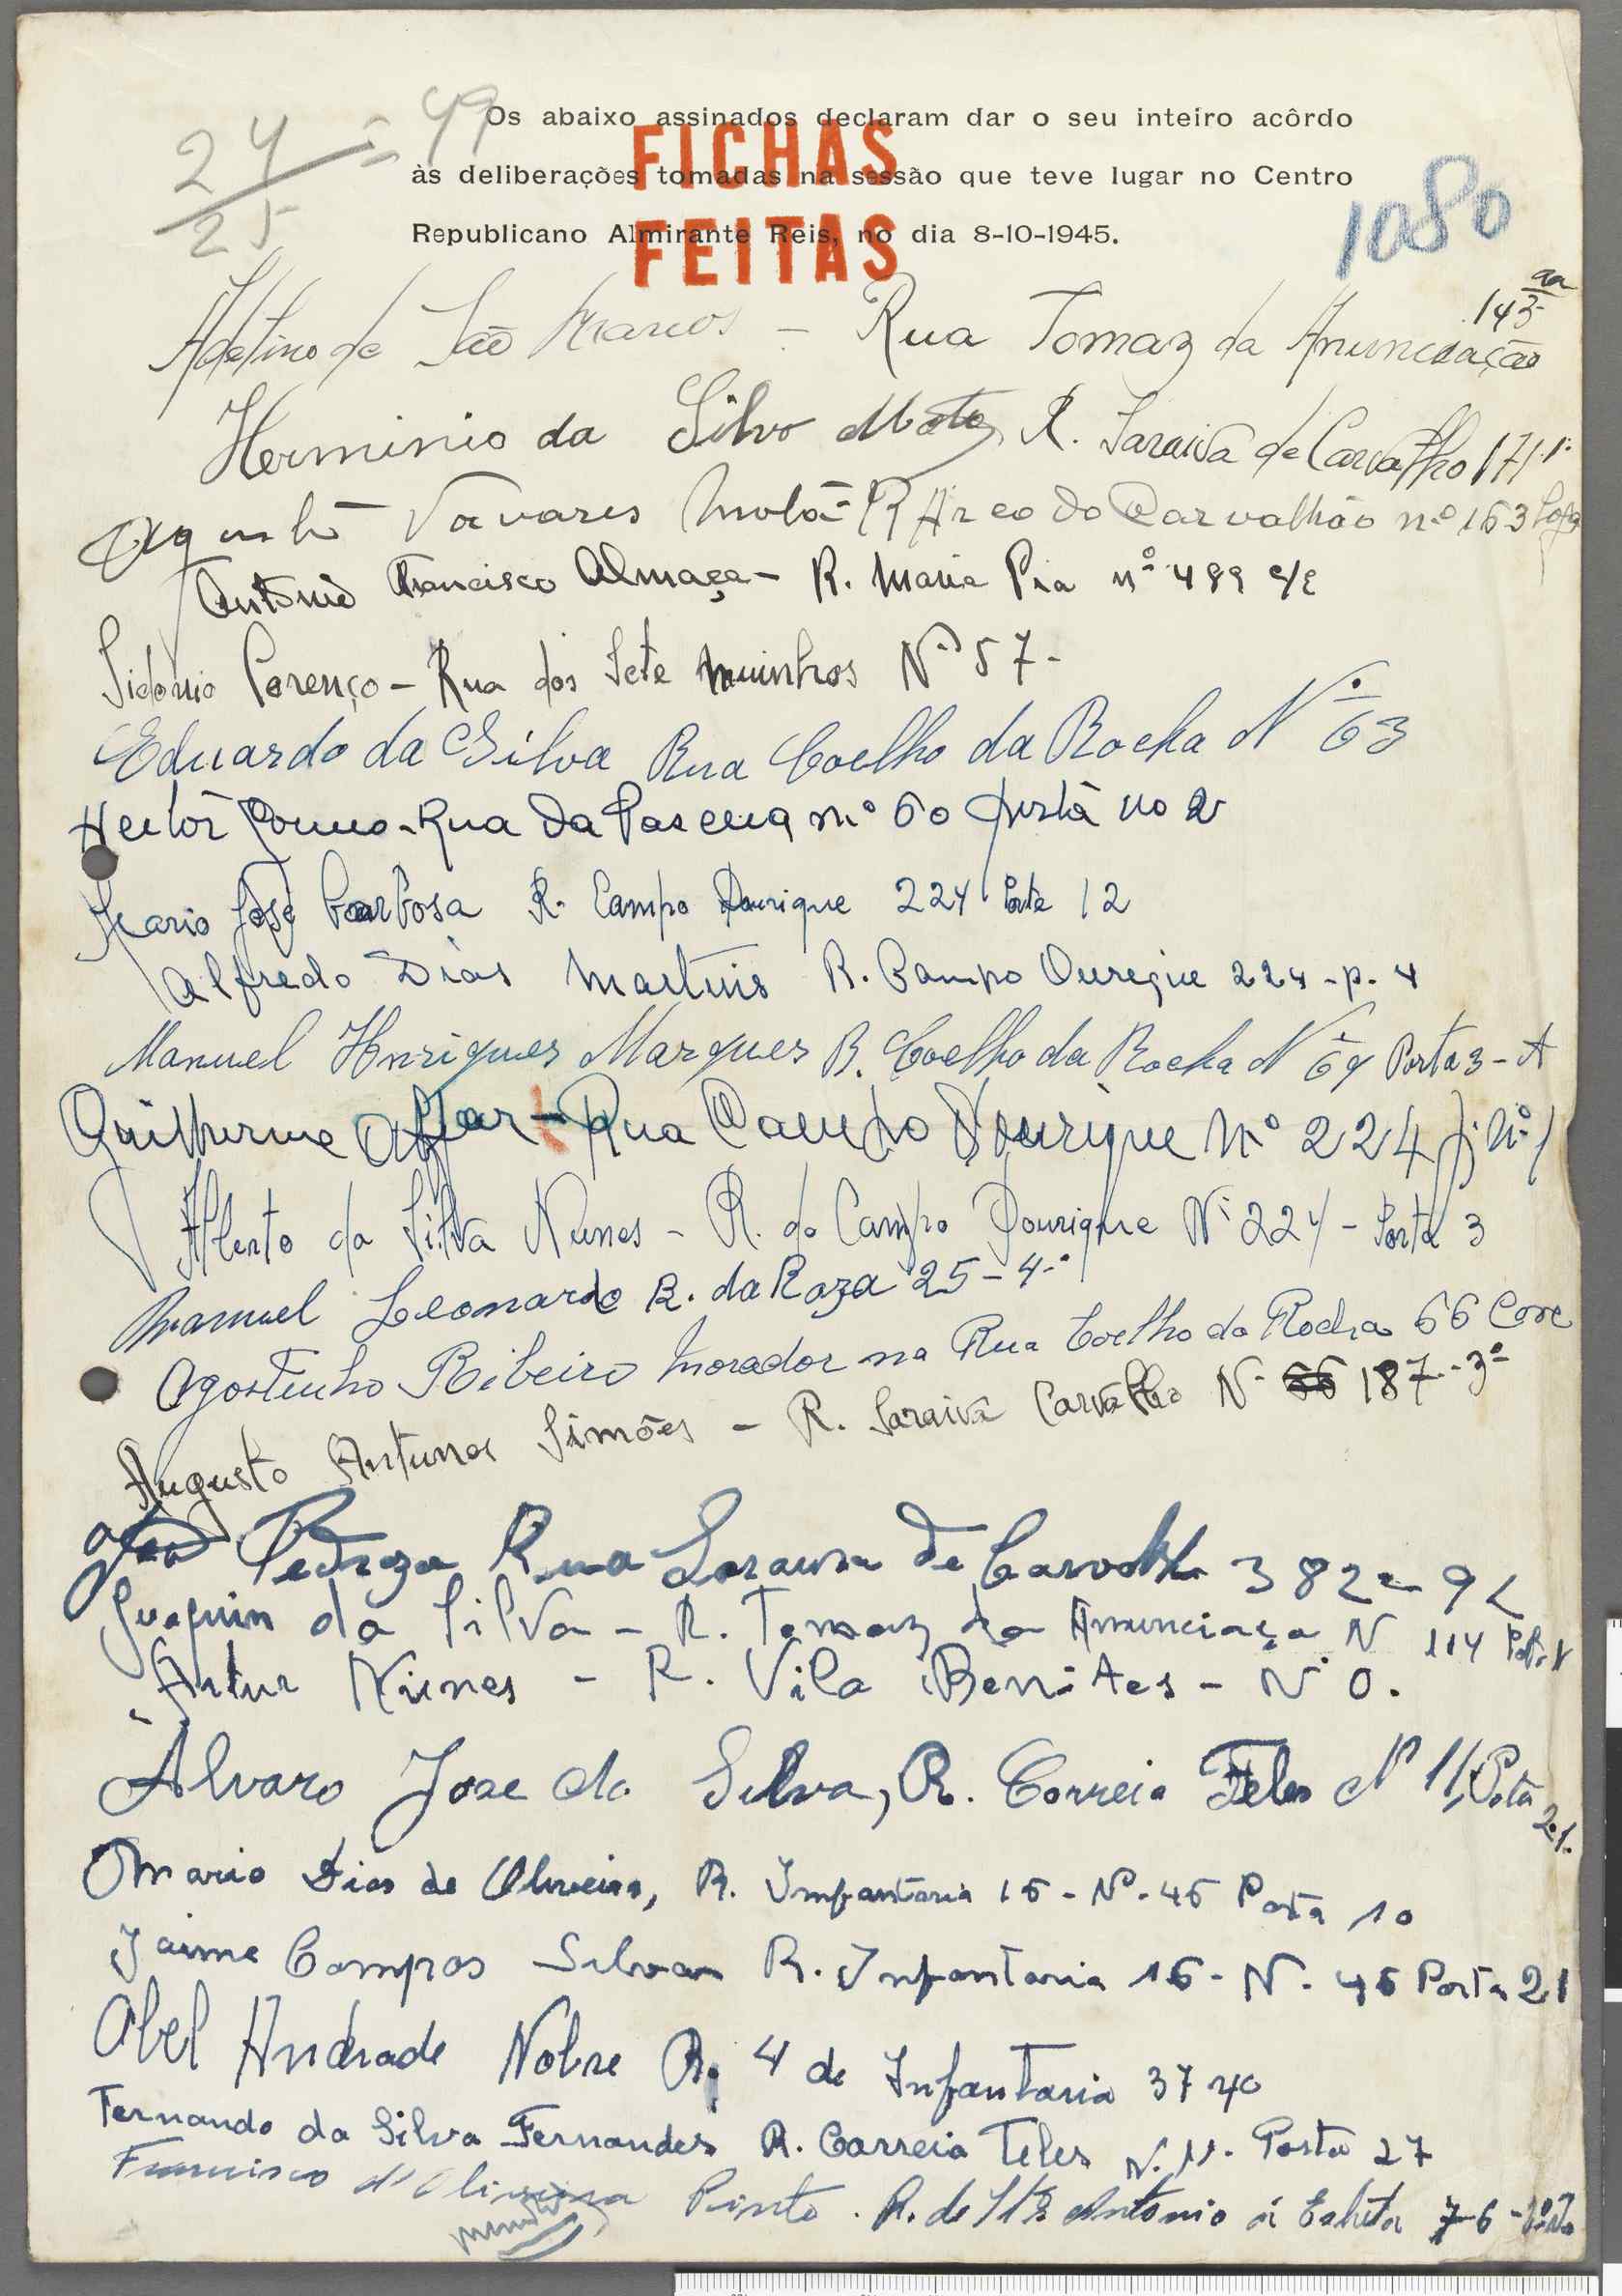 24/25 = 49
Os abaixo assinados declaram dar o seu inteiro acôrdo
às deliberações tomadas na sessão que teve lugar no Centro
Republicano Almirante Reis, no dia 8-10-1945.
FICHAS
FEITAS
1080
Adelino de São Marcos - Rua Tomaz da Anunciação 143
Herminio da Silva Mota R. Saraiva de Carvalho 171-1º
Tavares Mota - R Arco do Carvalhão nº 153 Loja
António Francisco Almaça - R. Maria Pia nº 489 c/e
Sidonio Lorenço - Rua dos Sete Muinhos Nº 57-
Eduardo da Silva Rua Coelho da Rocha Nº 63
Heitor Rua da nº 60 no 2
Mario José Barbosa R. Campo Dourique 224 Porta 12
Alfredo Dias Martins R. Campo Ourique 224 - p. 4
Manuel Henriques Marques R. Coelho da Rocha Nº 69 Porta 3-A
Guilherme - Rua Campo Dourique Nº 224 Nº 1
Alberto da Silva Nunes - R. do Campo Dourique Nº 224 - Porta 3
Manuel Leonardo R. da Raza 25-4.º
Agostinho Ribeiro Morador na Rua Coelho da Rocha 66 Cave
Augusto Antunes Simões - R. Saraiva Carvalho N- 187.-3º
Pedroza Rua Saraiva de Carvalho 382
Juaquim da Silva - R. Tomaz da Anunciaça N 114
Artur Nunes - R. Vila Benites - Nº 0.
Alvaro Jose da Silva, R. Correia Teles Nº 11, Porta 21.
Mario Dias de Oliveira, R. Imfantaria 16 - Nº. 46 Porta 10
Jaime Campos Silva R. Infantaria 16 - N. 46 Porta 21
Abel Andrade Nobre R. 4 de Infantaria 37 40
Fernando da Silva Fernandes R. Carreia Teles N. 11. Porta 27
Francisco d'Oliveira Pinto. R. de Stº Antonio á Estrela 7-6